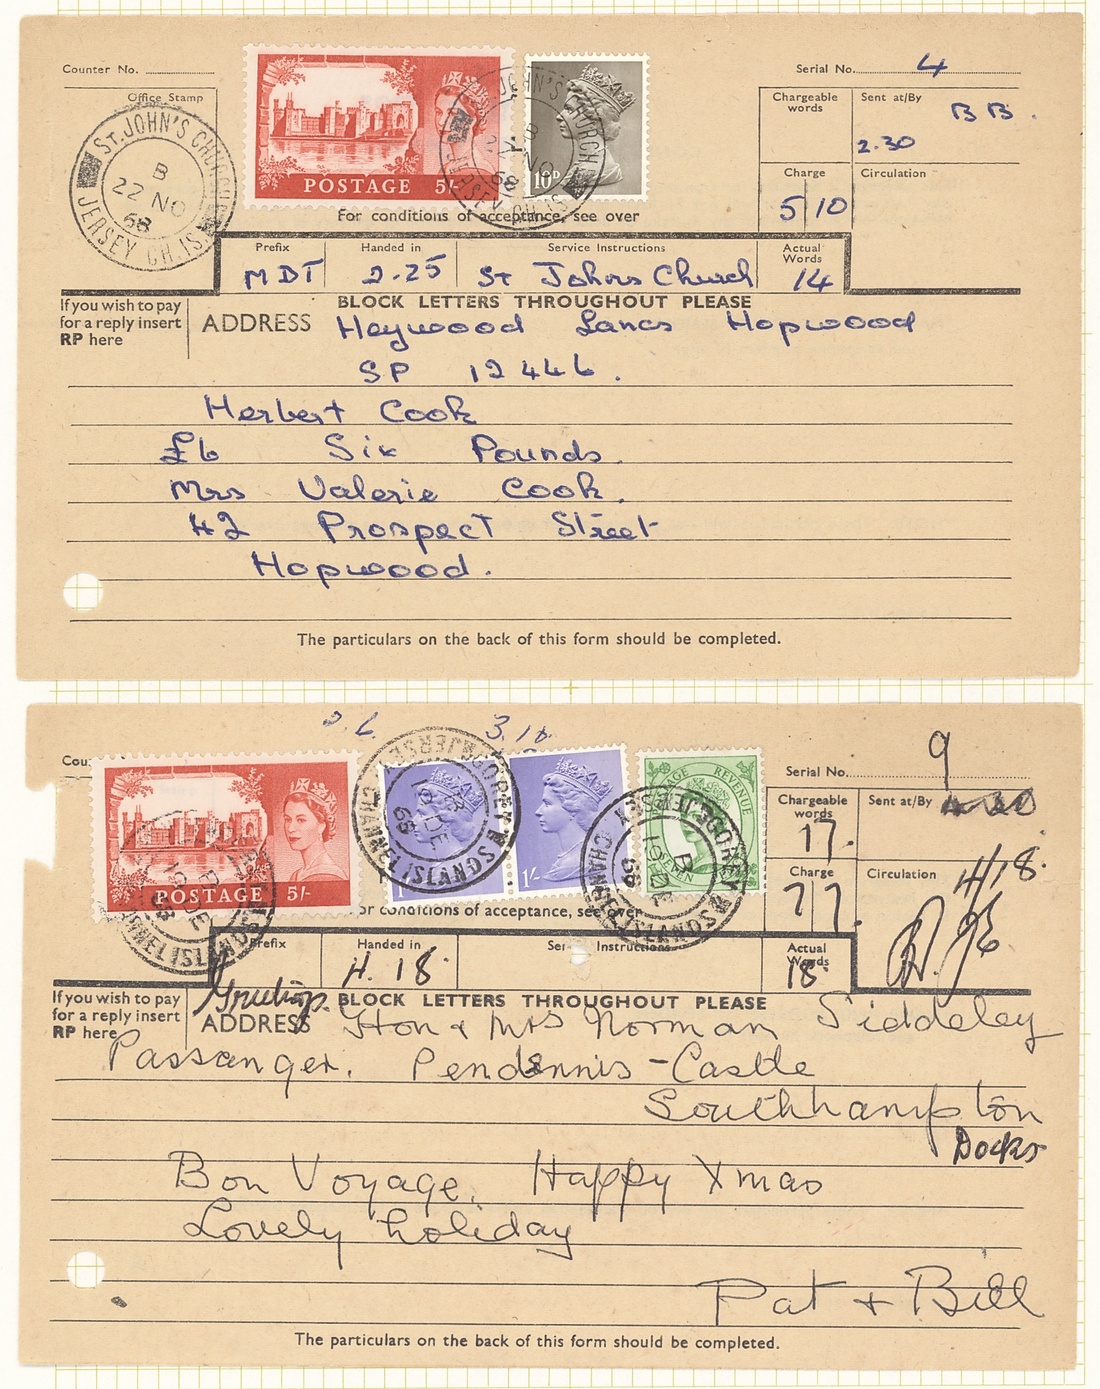 Counter No.
Serial No. 4
Office Stamp
ST. JOHN'S CHURCH
B
22 NO
68
JERSEY CH.IS.
POSTAGE 5/-
10P
ST. JOHN'S CHURCH
B
22 NO
68
JERSEY CH.IS.
Chargeable words
Sent at/By
B B.
2.30
Charge
5/10
Circulation
For conditions of acceptance, see over
Prefix
MDT
Handed in
2.25
Service Instructions
St Johns Church
Actual Words
14
If you wish to pay for a reply insert RP here
BLOCK LETTERS THROUGHOUT PLEASE
ADDRESS Heywood Lancs Hopwood
SP 12446.
Herbert Cook
£6 Six Pounds.
Mrs Valerie Cook.
42 Prospect Street
Hopwood.
The particulars on the back of this form should be completed.
3.10
Cou
Serial No. 9
POSTAGE 5/-
1/-
POSTAGE REVENUE
GOREY
19 DE
68
CHANNEL ISLANDS
Chargeable words
17.
Sent at/By
4.18.
Charge
7/7
Circulation
or conditions of acceptance, see over
Prefix
Greetings
Handed in
4.18
Service Instructions
Actual Words
18
If you wish to pay for a reply insert RP here
BLOCK LETTERS THROUGHOUT PLEASE
ADDRESS Hon & Mrs Norman Siddeley
Passanger. Pendennis-Castle
Southhampton
Docks
Bon Voyage. Happy Xmas
Lovely holiday
Pat & Bill
The particulars on the back of this form should be completed.